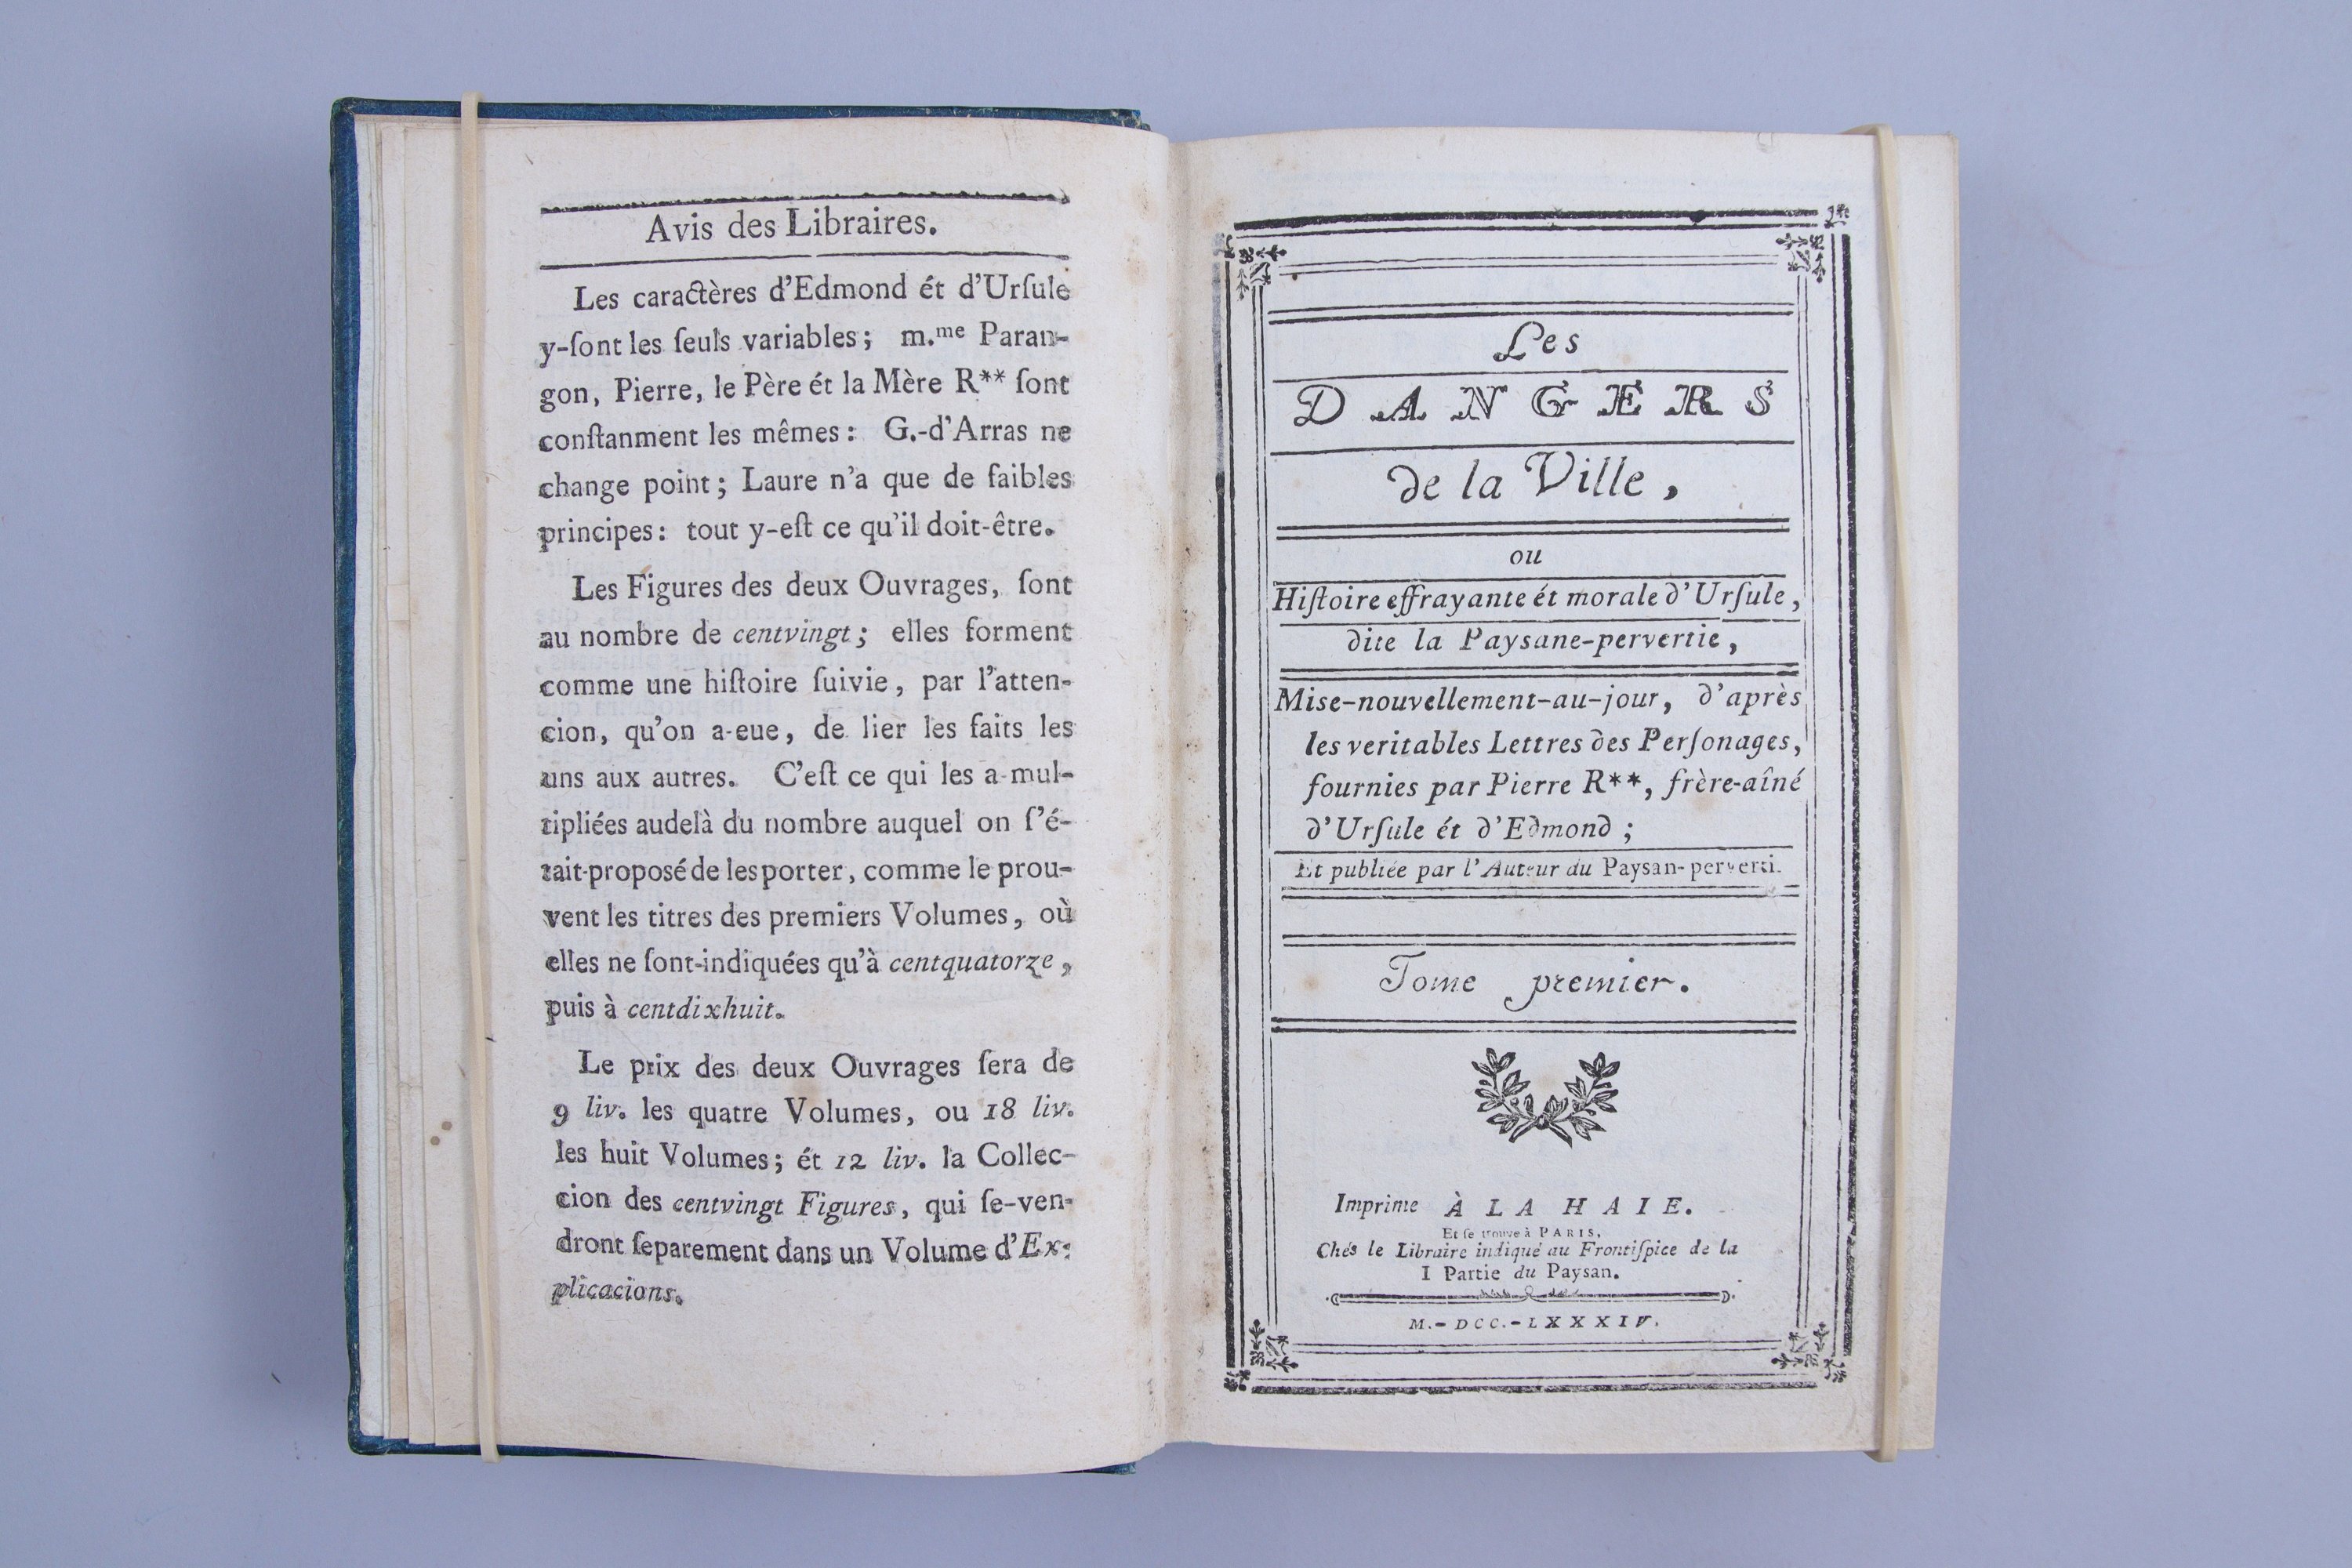 Avis des Libraires.
Les caractères d'Edmond ét d'Urſule
y-ſont les ſeuls variables; m.me Paran-
gon, Pierre, le Père ét la Mère R** ſont
conſtanment les mêmes: G.-d'Arras ne
change point; Laure n'a que de faibles
principes: tout y-eſt ce qu'il doit-être.
Les Figures des deux Ouvrages, ſont
au nombre de centvingt; elles forment
comme une hiſtoire ſuivie, par l'atten-
cion, qu'on a-eue, de lier les faits les
uns aux autres. C'eſt ce qui les a-mul-
tipliées audelà du nombre auquel on ſ'é-
tait-proposé de les porter, comme le prou-
vent les titres des premiers Volumes, où
elles ne ſont-indiquées qu'à centquatorze,
puis à centdixhuit.
Le prix des deux Ouvrages ſera de
9 liv. les quatre Volumes, ou 18 liv.
les huit Volumes; ét 12 liv. la Collec-
cion des centvingt Figures, qui ſe-ven-
dront ſeparement dans un Volume d'Ex-
plicacions.
Les
DANGERS
de la Ville,
ou
Hiſtoire effrayante ét morale d'Urſule,
dite la Paysane-pervertie,
Mise-nouvellement-au-jour, d'après
les veritables Lettres des Perſonages,
fournies par Pierre R**, frère-aîné
d'Urſule ét d'Edmond;
Et publiée par l'Auteur du Paysan-perverti.
Tome premier.
Imprime À LA HAIE.
Et ſe trouve à PARIS,
Chés le Libraire indiqué au Frontiſpice de la
I Partie du Paysan.
M.-DCC.-LXXXIV.